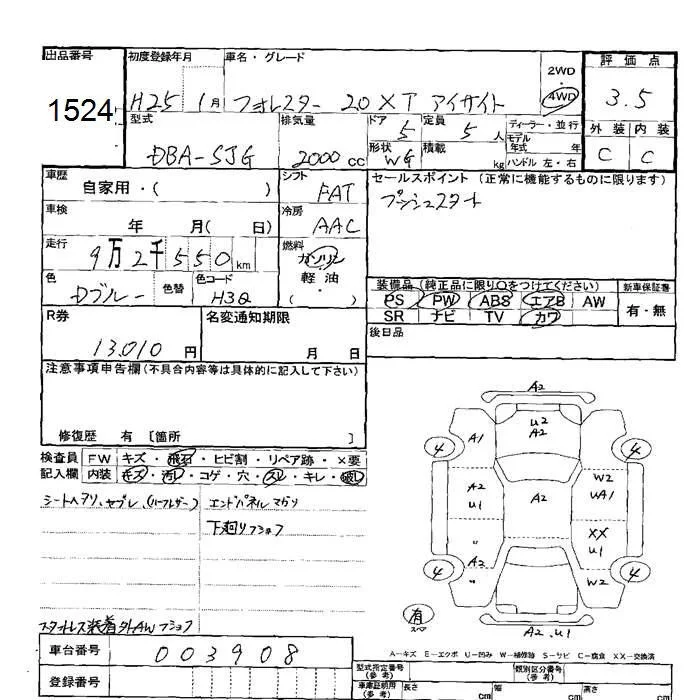 出品番号 初度登録年月 車名・グレード 評価点
1524 H25 1月 フォレスター 20XT アイサイト 2WD 4WD 3.5
型式 排気量 ドア 定員 ディーラー・並行 外装 内装
DBA-SJG 2000cc 5 5人 モデル年式 年 C C
形状 WG 積載 kg ハンドル 左・右
車歴 自家用・( ) シフト FAT セールスポイント (正常に機能するものに限ります)
車検 年 月( 日) 冷房 AAC プッシュスタート
走行 9万2千550km 燃料 ガソリン 軽油・( )
色 Dブルー 色替 色コード H3Q 装備品 (純正品に限り○をつけてください) 新車保証書
PS PW ABS エアB AW 有・無
SR ナビ TV カワ
R券 名変通知期限 後日品
13,010円 月 日
注意事項申告欄(不具合内容等は具体的に記入して下さい)
修復歴 有 [箇所 ]
検査員 FW キズ・飛石・ヒビ割・リペア跡・×要
記入欄 内装 キズ・汚レ・コゲ・穴・スレ・キレ・破レ
エンドパネルマガリ
下廻りフショク
スタットレス装着外AWフショク
車台番号 003908
登録番号
A2
U2
A2
A1
4 4
A2
U1
A2
W2
UA1
XX
U1
A2
W2
4 4
有
スペア
A2.U1
A-キズ E-エクボ U-凹み W-補修跡 S-サビ C-腐食 XX-交換済
型式指定番号(参考) 類別区分番号(参考)
車庫証明用(参考) 長さ cm 幅 cm 高さ cm